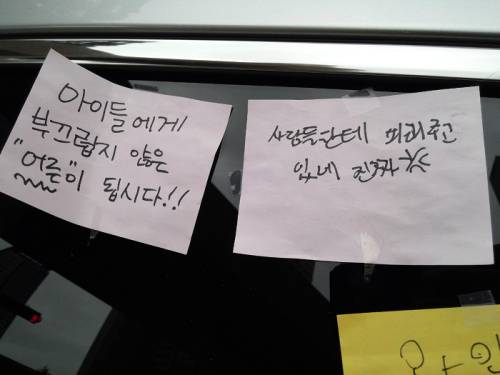 아이들에게
부끄럽지 않은
"어른"이 됩시다!!
사람들한테 피해주고
있네 진짜